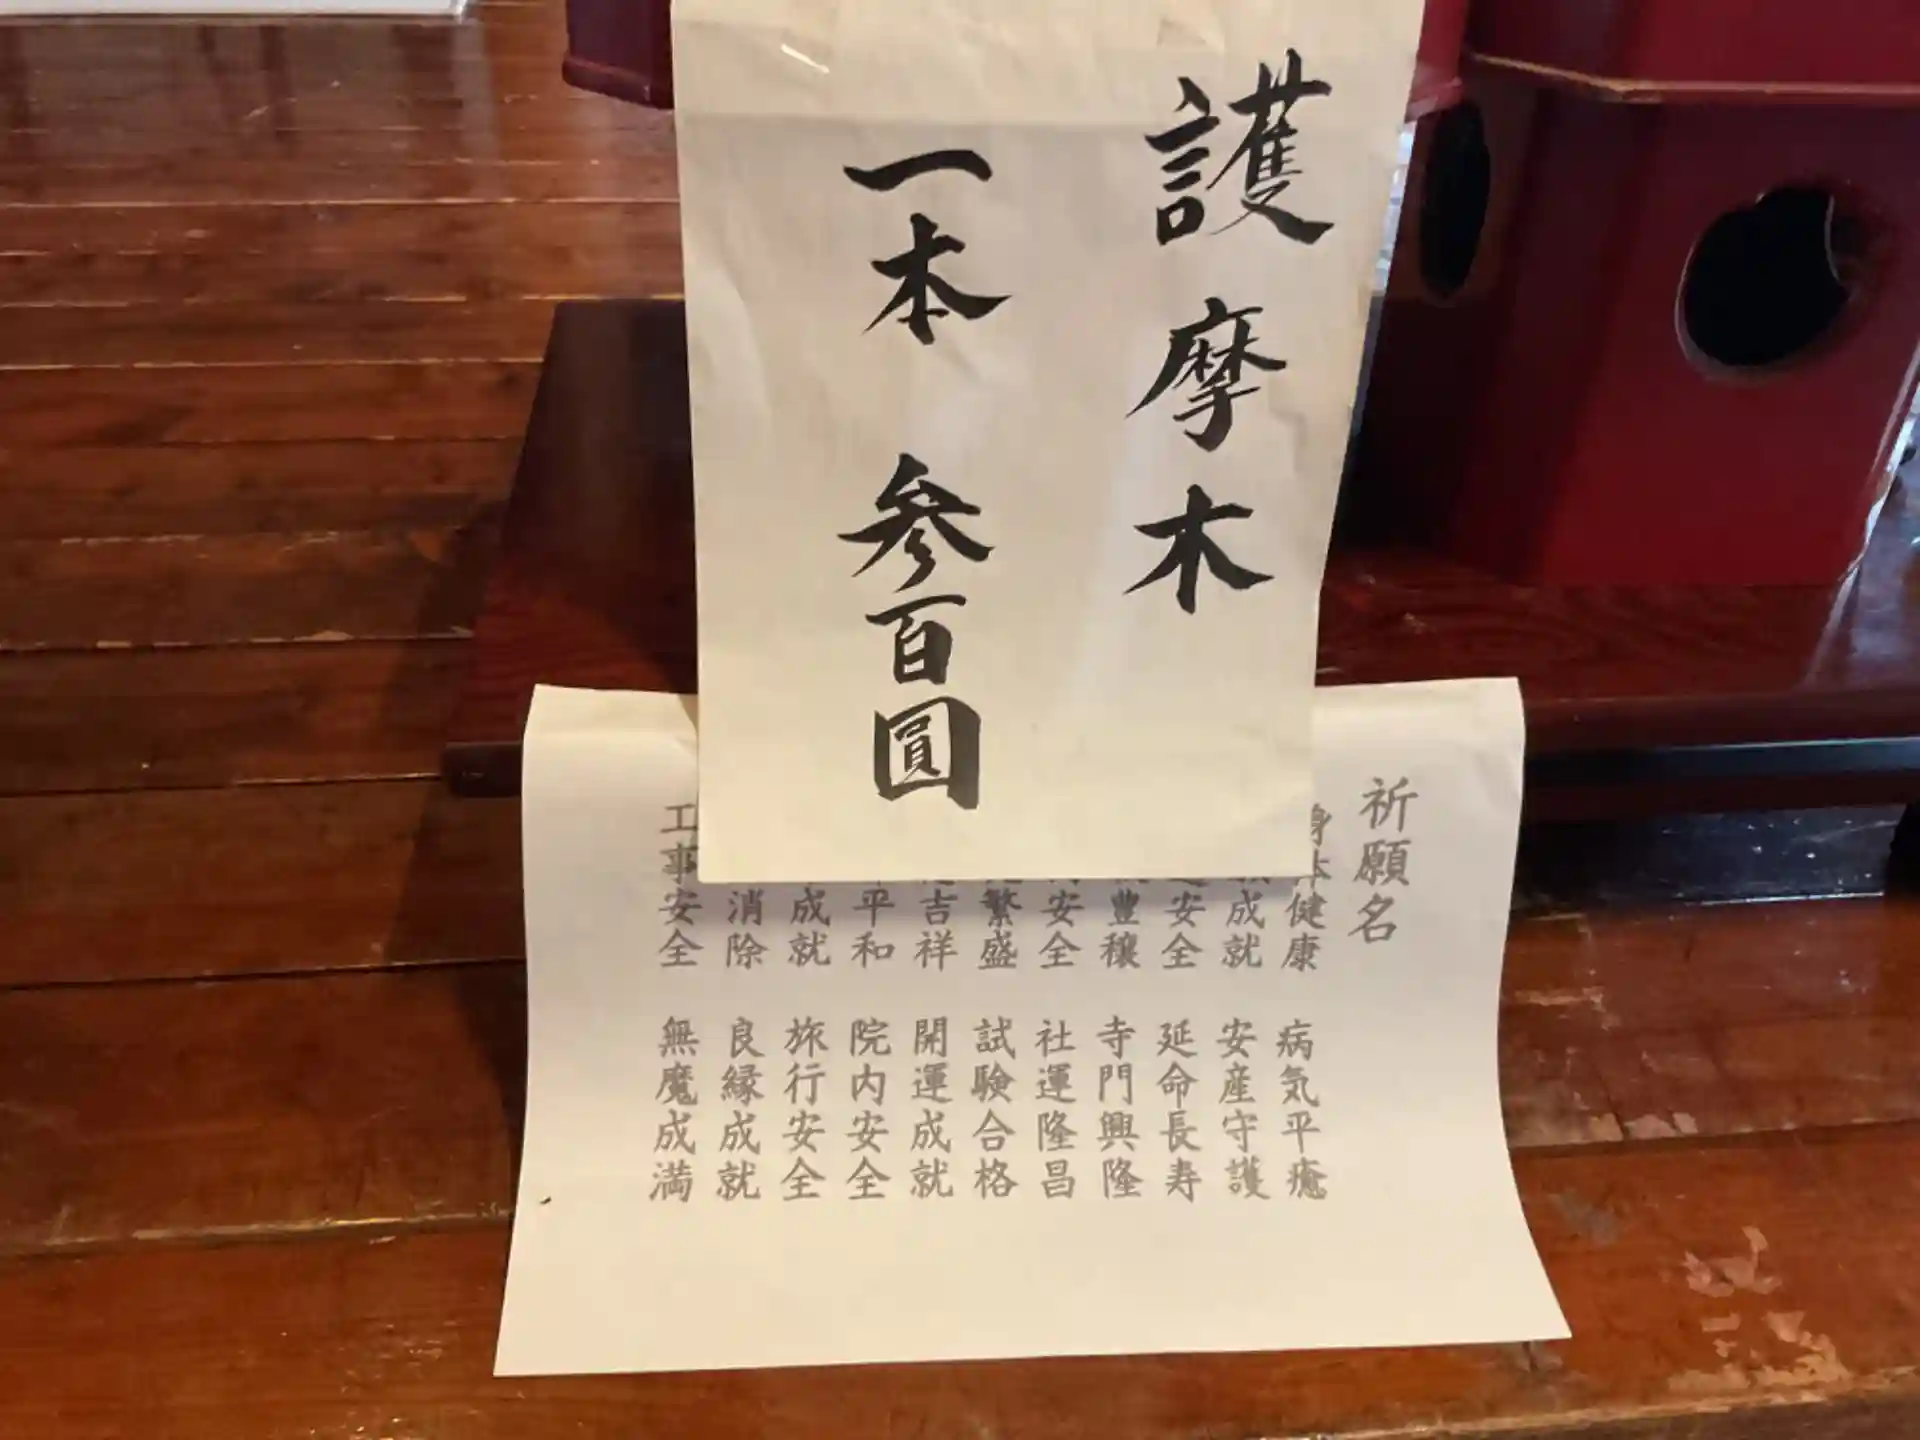 護摩木
一本 参百圓
祈願名
身体健康
成就
安全
豊穣
安全
繁盛
吉祥
平和
成就
消除
工事安全
病気平癒
安産守護
延命長寿
寺門興隆
社運隆昌
試験合格
開運成就
院内安全
旅行安全
良縁成就
無魔成満